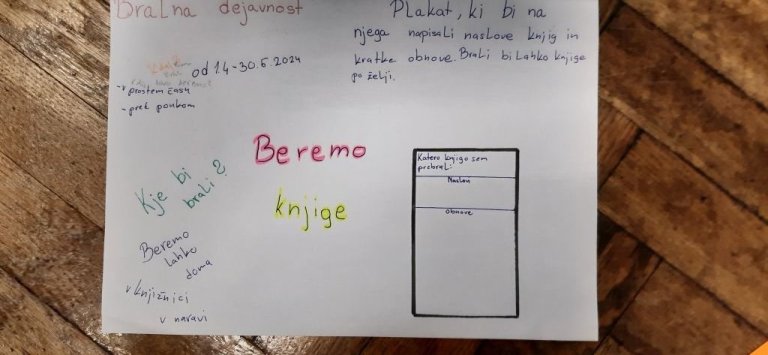 Bralna dejavnost
Plakat, ki bi na
njega napisali naslove knjig in
kratke obnove. Brali bi Lahko knjige
po želji.
od 1.4-30.5.2024
v prostem času
- pred poukom
Beremo
knjige
Kje bi
brali?
Beremo
Lahko
doma
v knjižnici
v naravi
Katero knjigo sem
prebral:
Naslov
Obnove